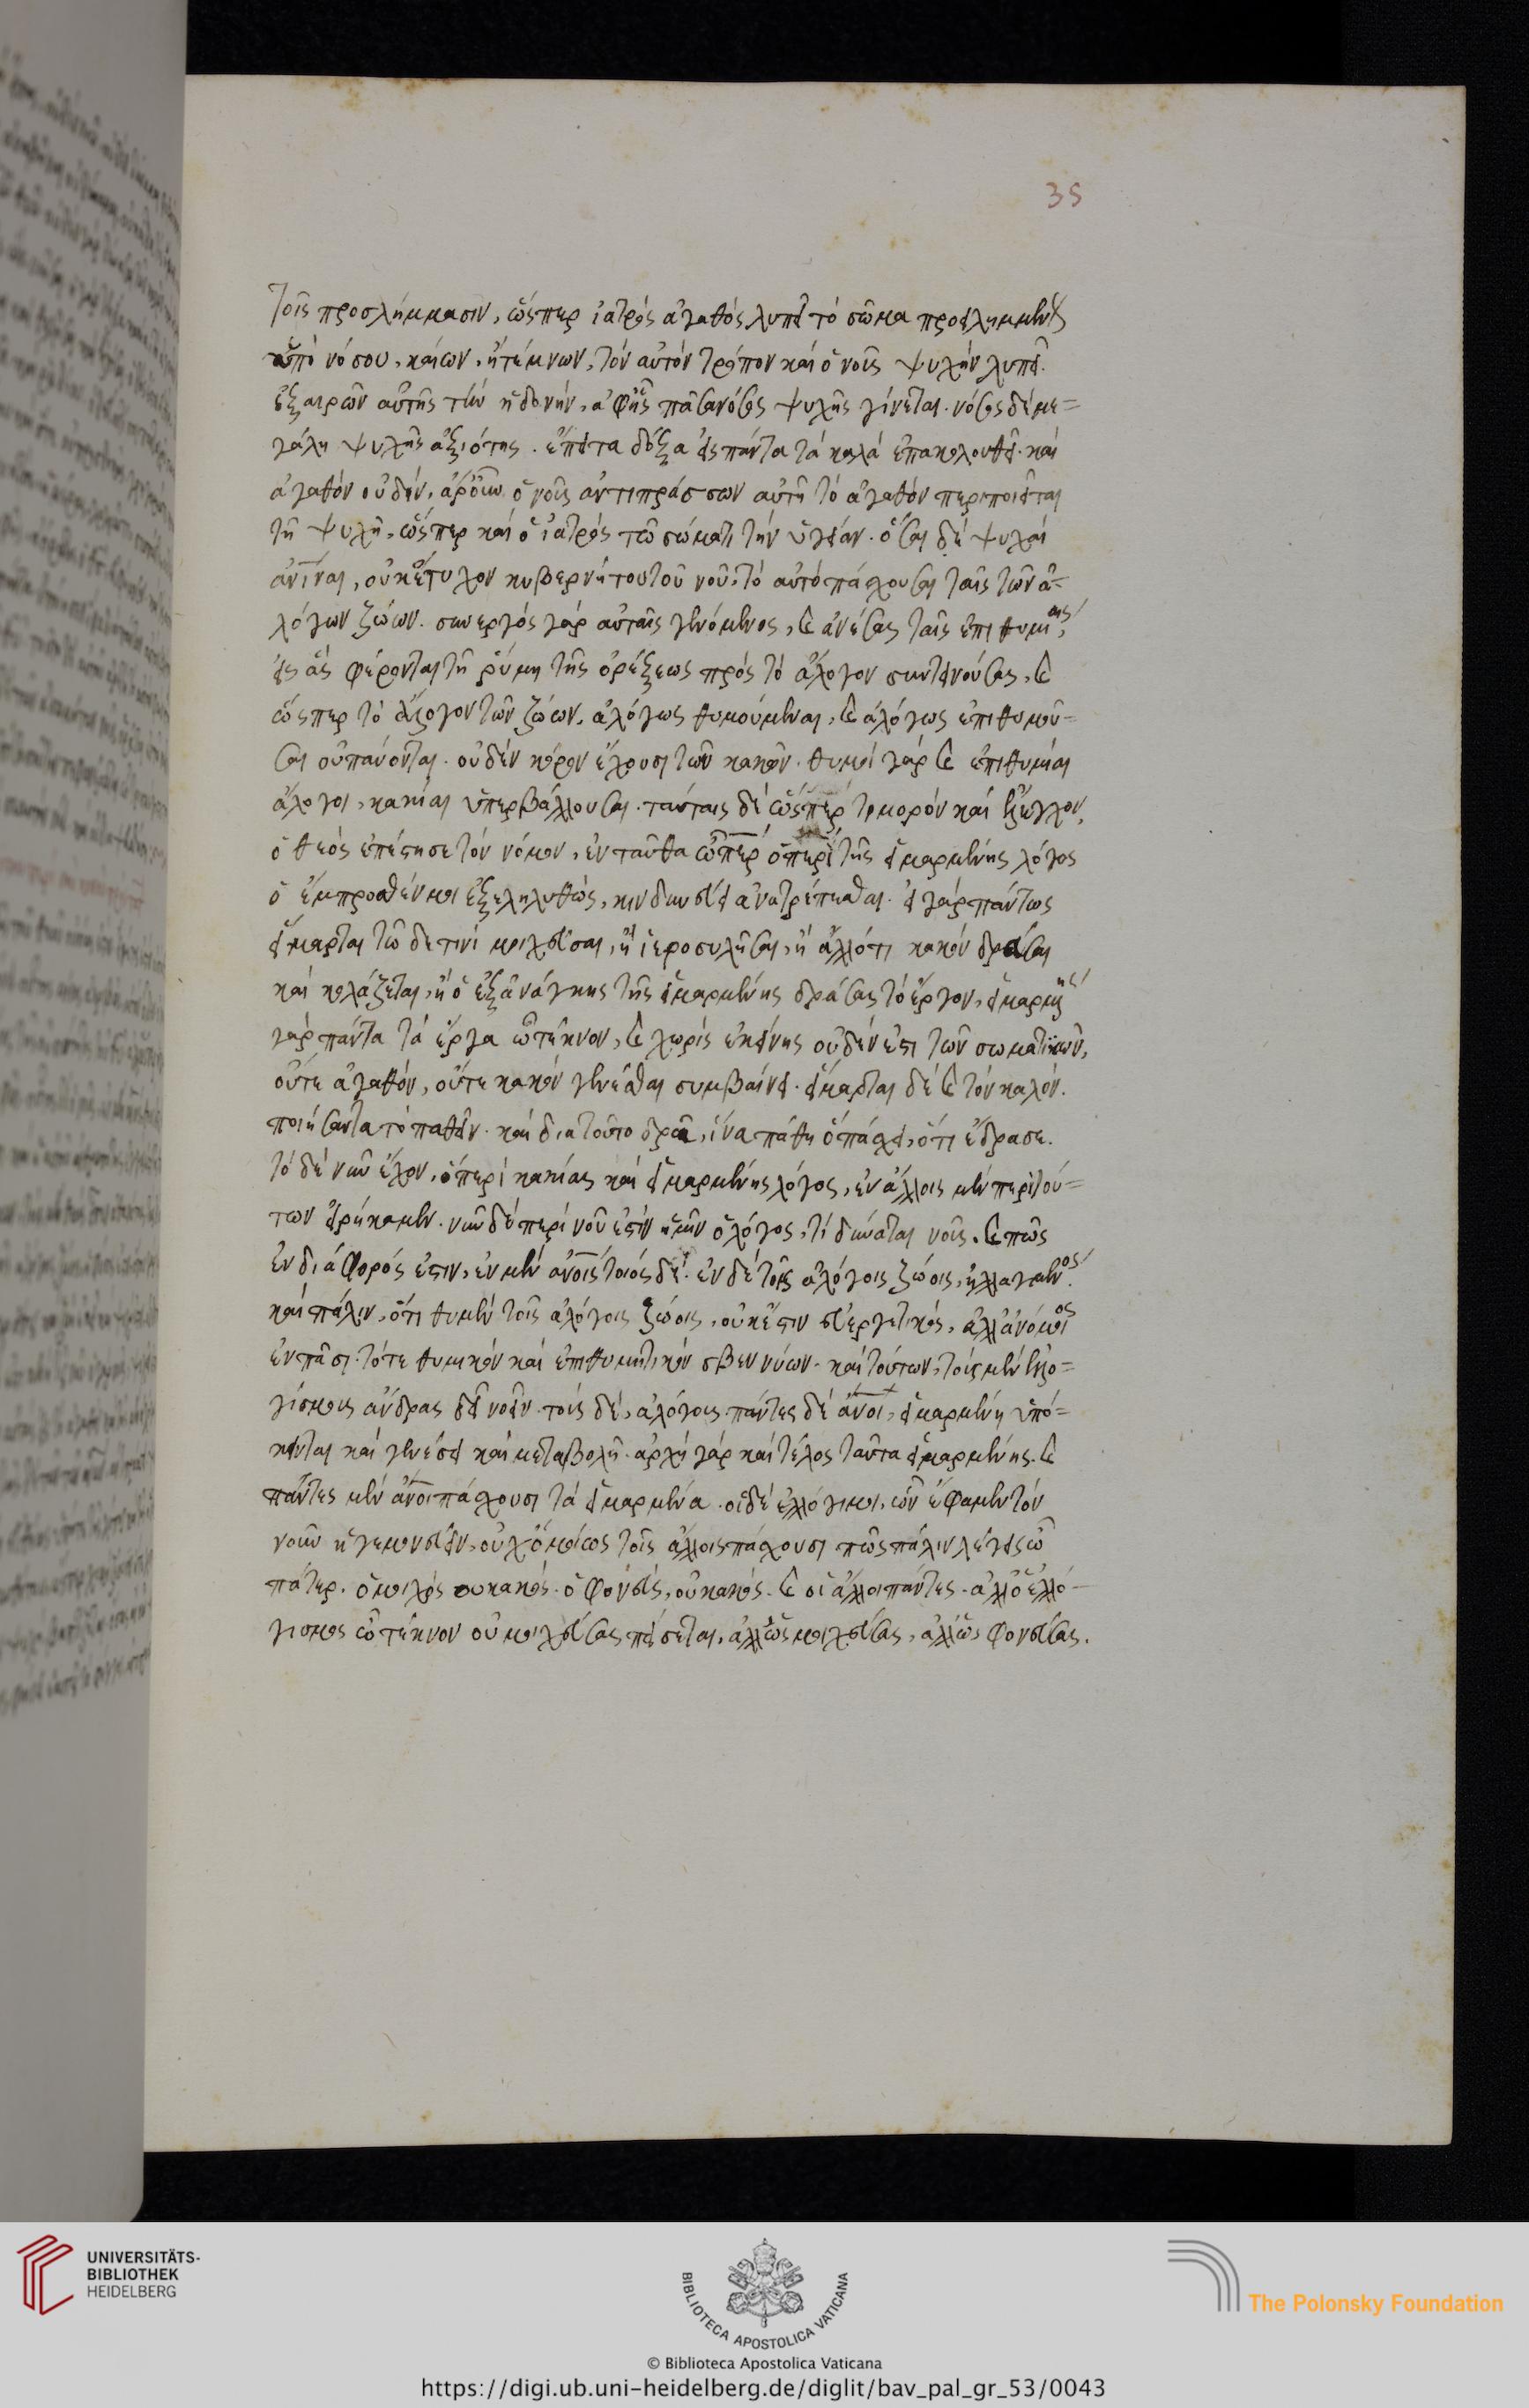 35
τοῖς προσλήμμασιν, ὥσπερ ἰατρὸς ἀγαθὸς λυπεῖ τὸ σῶμα προειλημμένον
ὑπὸ νόσου, καίων, ἢ τέμνων, τὸν αὐτὸν τρόπον καὶ ὁ νοῦς ψυχὴν λυπεῖ.
ἐξαιρῶν αὐτῆς τὴν ἡδονήν, ἀφ' ἧς πᾶσα νόσος ψυχῆς γίνεται. νόσος δὲ με=
γάλη ψυχῆς ἀξιότης. ἔπειτα δόξα εἰς πάντα τὰ καλὰ ἐπακολουθεῖ. καὶ
ἀγαθὸν οὐδέν, ὁ νοῦς ἀντιπράσσων αὐτῇ τὸ ἀγαθὸν περιποιεῖται
τῇ ψυχῇ, ὥσπερ καὶ ὁ ἰατρὸς τῷ σώματι τὴν ὑγείαν. ὅσαι δὲ ψυχαὶ
ἀνιναι, οὐκ ἔτυχον κυβερνήτου τοῦ νοῦ, τὸ αὐτὸ πάσχουσι ταῖς τῶν ἀ=
λόγων ζώων. συνεργὸς γὰρ αὐταῖς γενόμενος, καὶ ἀνέσας ταῖς ἐπιθυμίαις,
εἰς ἃς φέρονται τῇ ῥύμῃ τῆς ὀρέξεως πρὸς τὸ ἄλογον συντεινούσας, καὶ
ὥσπερ τὸ ἄλογον τῶν ζώων, ἀλόγως θυμούμεναι, καὶ ἀλόγως ἐπιθυμοῦ=
σαι οὐ παύονται. οὐδὲν κόρον ἔχουσι τῶν κακῶν. θυμοὶ γὰρ καὶ ἐπιθυμίαι
ἄλογοι, κακίαι ὑπερβάλλουσαι. ταύταις δὲ ὥσπερ τιμορὸν καὶ ἔλεγχον,
ὁ θεὸς ἐπέστησε τὸν νόμον, ἐνταῦθα ὦ περ ὁ περὶ τῆς εἱμαρμένης λόγος
ὁ ἔμπροσθέν μοι ἐξεληλυθώς, κινδυνεύει ἀνατρέπεσθαι. εἰ γὰρ πάντως
εἵμαρται τῷ δέ τινι μοιχεῦσαι, ἢ ἱεροσυλῆσαι, ἢ ἄλλό τι κακὸν δρᾶσαι
καὶ κολάζεται, ἢ ὁ ἐξ ἀνάγκης τῆς εἱμαρμένης δράσας τὸ ἔργον, εἱμαρμένης
γὰρ πάντα τὰ ἔργα ὦ τέκνον, καὶ χωρὶς ἐκείνης οὐδέν ἐστι τῶν σωματικῶν,
οὔτε ἀγαθόν, οὔτε κακὸν γενέσθαι συμβαίνει. εἵμαρται δὲ καὶ τὸν καλόν.
ποιήσαντα τὸ παθεῖν. καὶ διατοῦτο δρᾶ, ἵνα πάθη ὁ πάσχει, ὅτι ἔδρασε.
τὸ δὲ νῦν ἔχον, ὁ περὶ κακίας καὶ εἱμαρμένης λόγος, ἐν ἄλλοις μὲν περὶ τού=
των εἰρήκαμεν. νῦν δὲ περὶ νοῦ ἐστὶν ἡμῖν ὁ λόγος, τί δύναται νοῦς, καὶ πῶς
ἐν διάφορός ἐστιν, ἐν μὲν ἀνοις τοιόσδε. ἐν δὲ τοῖς ἀλόγοις ζώοις, ἠλλαγμένος.
καὶ πάλιν, ὅτι θυμὲν τοῖς ἀλόγοις ζώοις, οὐκ ἔστιν εὐεργετικός, ἀλλ' ἀνόμοιος
ἐν πᾶσι. τό τε θυμικὸν καὶ ἐπιθυμητικὸν σβεννύων. καὶ τούτων, τοὺς μὲν ἐλλο=
γίσμους ἄνδρας δεῖ νοεῖν. τοὺς δέ, ἀλόγοις. πάντες δὲ ἄνοι, εἱμαρμένη ὑπό=
κεινται καὶ γενέσει καὶ μεταβολῇ. ἀρχὴ γὰρ καὶ τέλος ταῦτα εἱμαρμένης. καὶ
πάντες μὲν ἄνοι πάσχουσι τὰ εἱμαρμένα. οἱ δὲ ἐλλόγιμοι, ὧν ἔφαμεν τὸν
νοῦν ἡγεμονεύειν, οὐχ ὁμοίως τοῖς ἄλλοις πάσχουσι πῶς πάλιν λέγεις ὦ
πάτερ. ὁ μοιχὸς οὐ κακός. ὁ φονεύς, οὐ κακός. καὶ οἱ ἄλλοι πάντες. ἀλλ' ὁ ἐλλό=
γισμος ὦ τέκνον οὐ μοιχεύσας πείσεται, ἀλλ' ὡς μοιχεύσας, ἀλλ' ὡς φονεύσας.
UNIVERSITÄTS-
BIBLIOTHEK
HEIDELBERG
BIBLIOTECA APOSTOLICA VATICANA
The Polonsky Foundation
© Biblioteca Apostolica Vaticana
https://digi.ub.uni-heidelberg.de/diglit/bav_pal_gr_53/0043